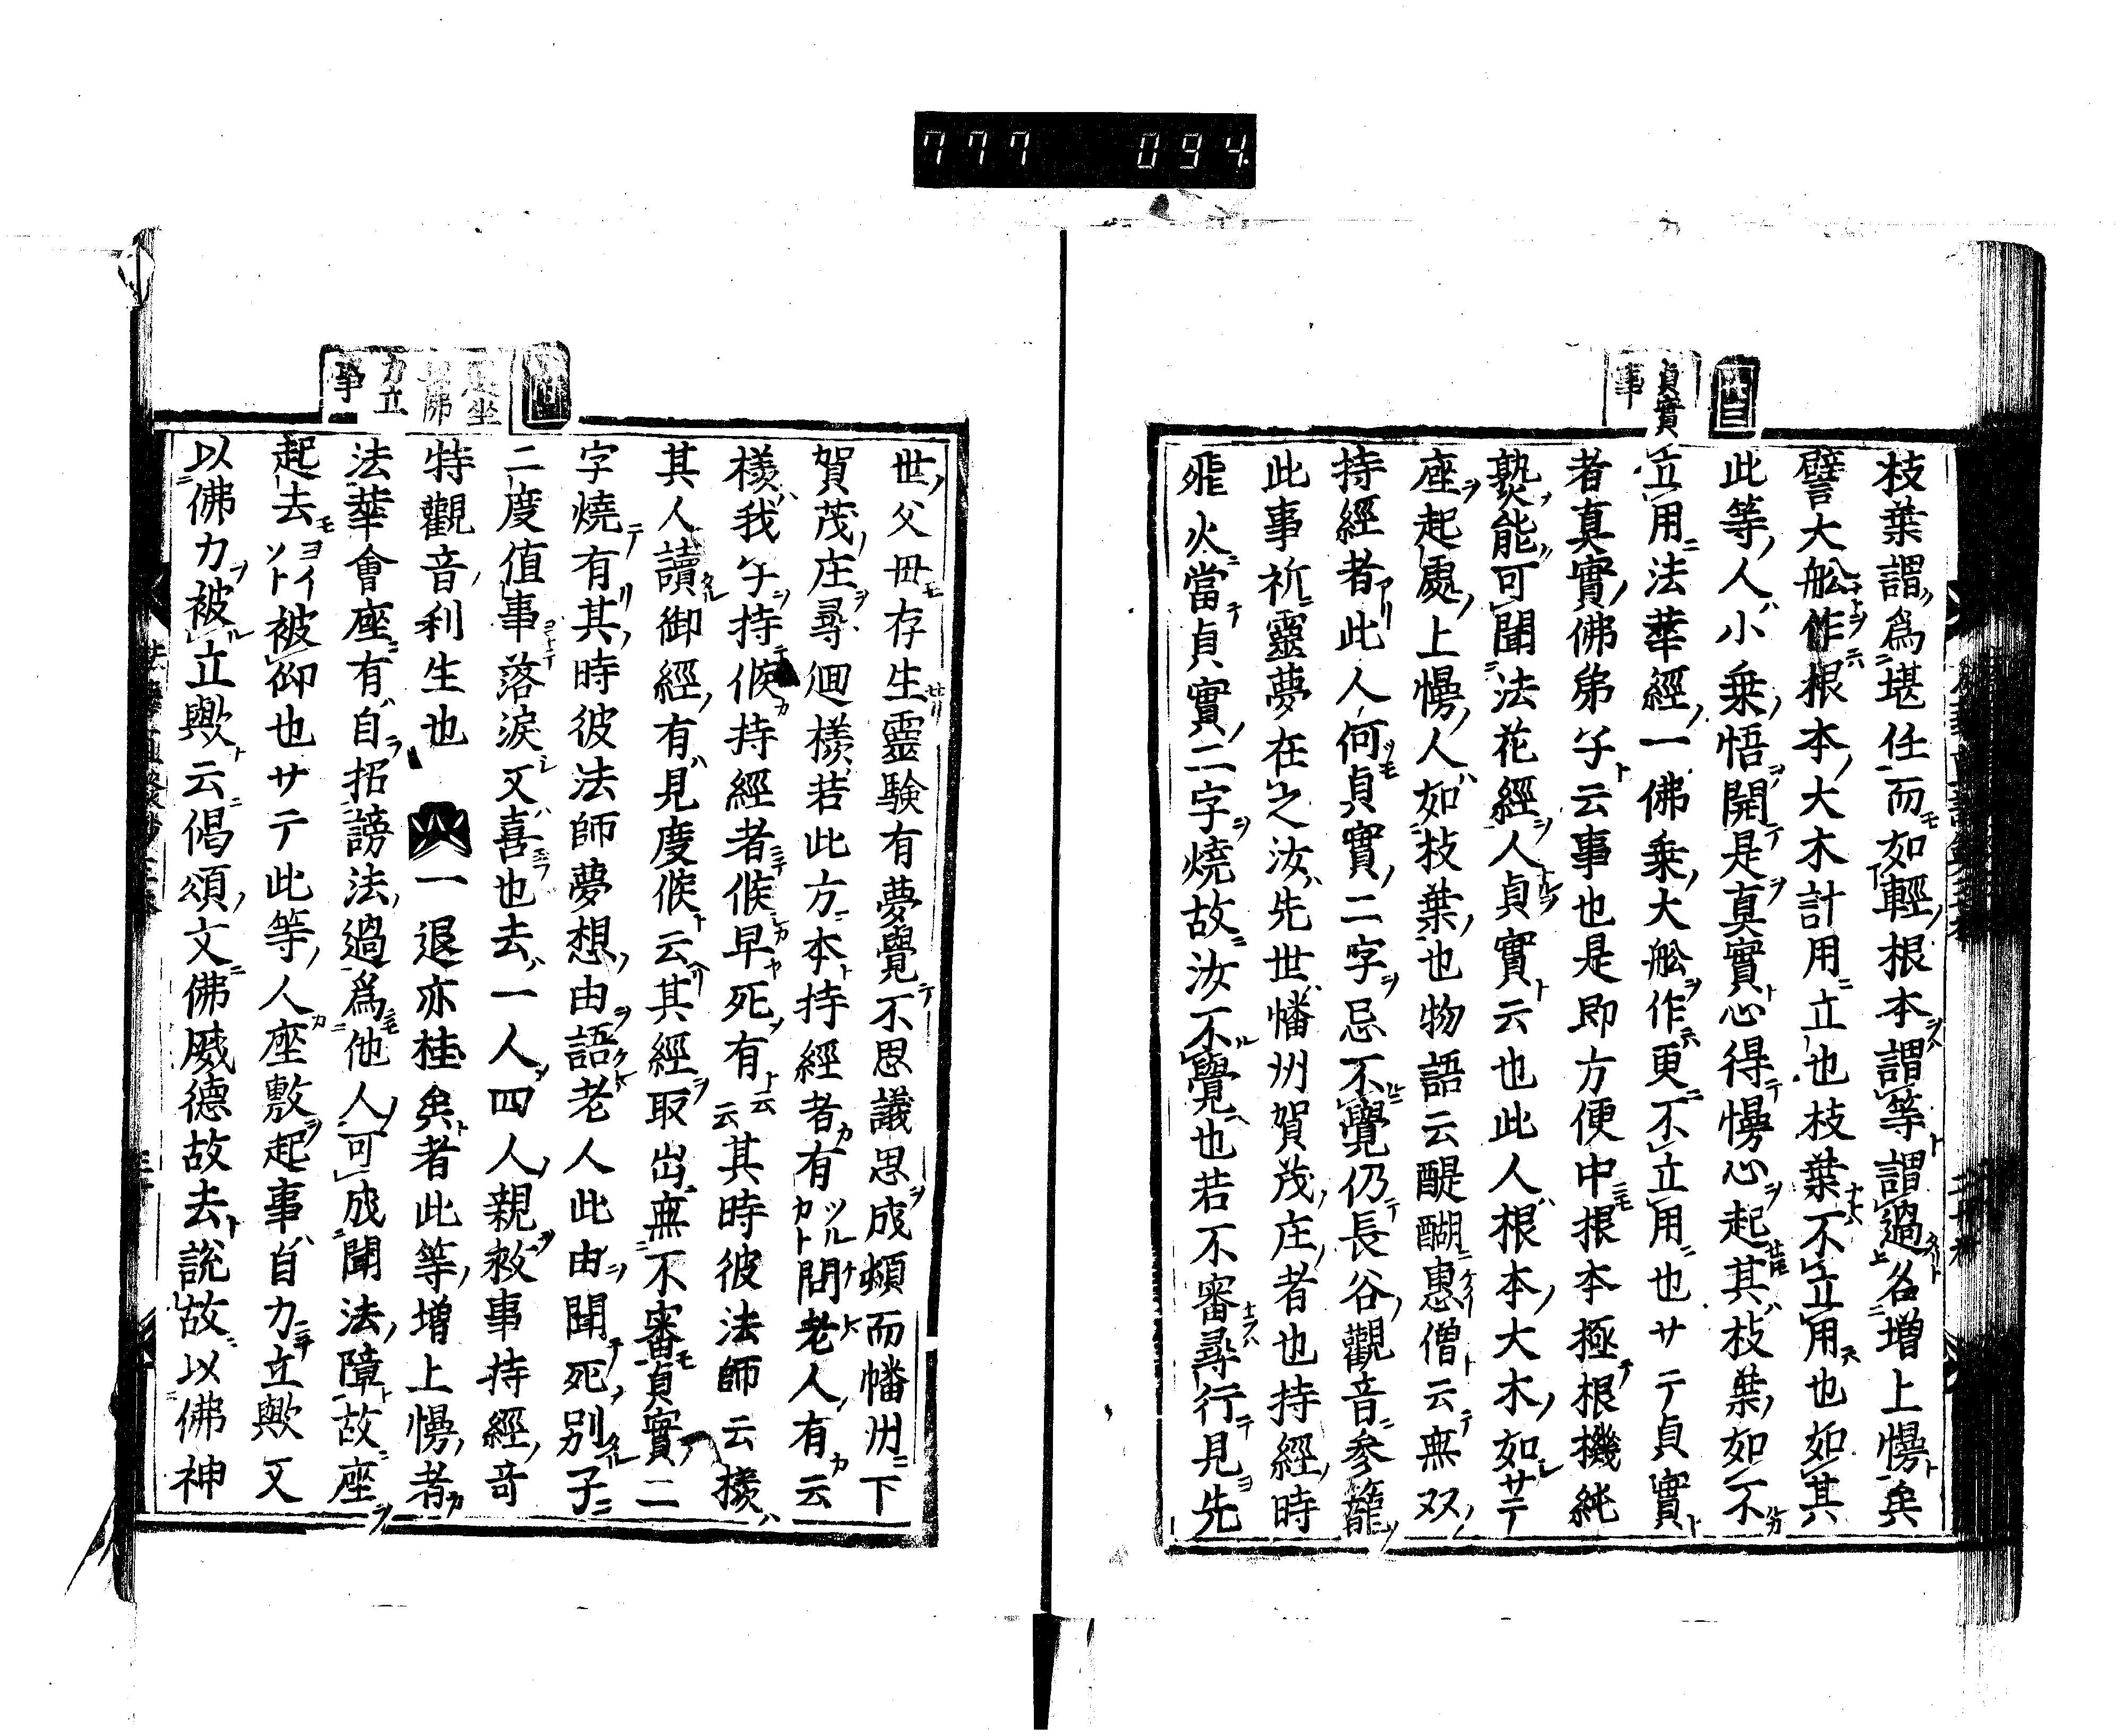 777 094
貞實
事
枝葉謂爲堪任而如輕根本謂等謂過名増上慢矣
譬大舩作根本大木計用立也枝葉不立用也如其
此等人小乗悟開是真實心得慢心起其枝葉如不
立用法華經一佛乗大舩作更不立用也サテ貞實
者真實佛弟子云事也是即方便中根本極根機純
熟能可聞法花經人貞實云也此人根本大木如サテ
座起處上慢人如枝葉也物語云醍醐惠僧云無双
持經者此人何貞實二字忌不覺仍長谷觀音參籠
此事祈靈夢在之汝先世幡州賀茂庄者也持經時
飛火當貞實二字燒故汝不覺也若不審尋行見先
力立
事
世父母存生靈験有夢覺不思議思成頻而幡州下
賀茂庄尋廻様若此方本持經者有ツルカト問老人有云
様我子持候持經者候早死有云云其時彼法師云様
其人讀御經有見度候云其經取出無不審貞實二
字燒有其時彼法師夢想由語老人此由聞死別子
二度値事落涙又喜也去一人四人親敎事持經竒
特觀音利生也 一退亦佳矣者此等増上慢者
法華會座有自招謗法過爲他人可成聞法障故座
起去モヨイソト被仰也サテ此等人座敷起事自力立歟又
以佛力被立歟云偈頌文佛威德故去說故以佛神